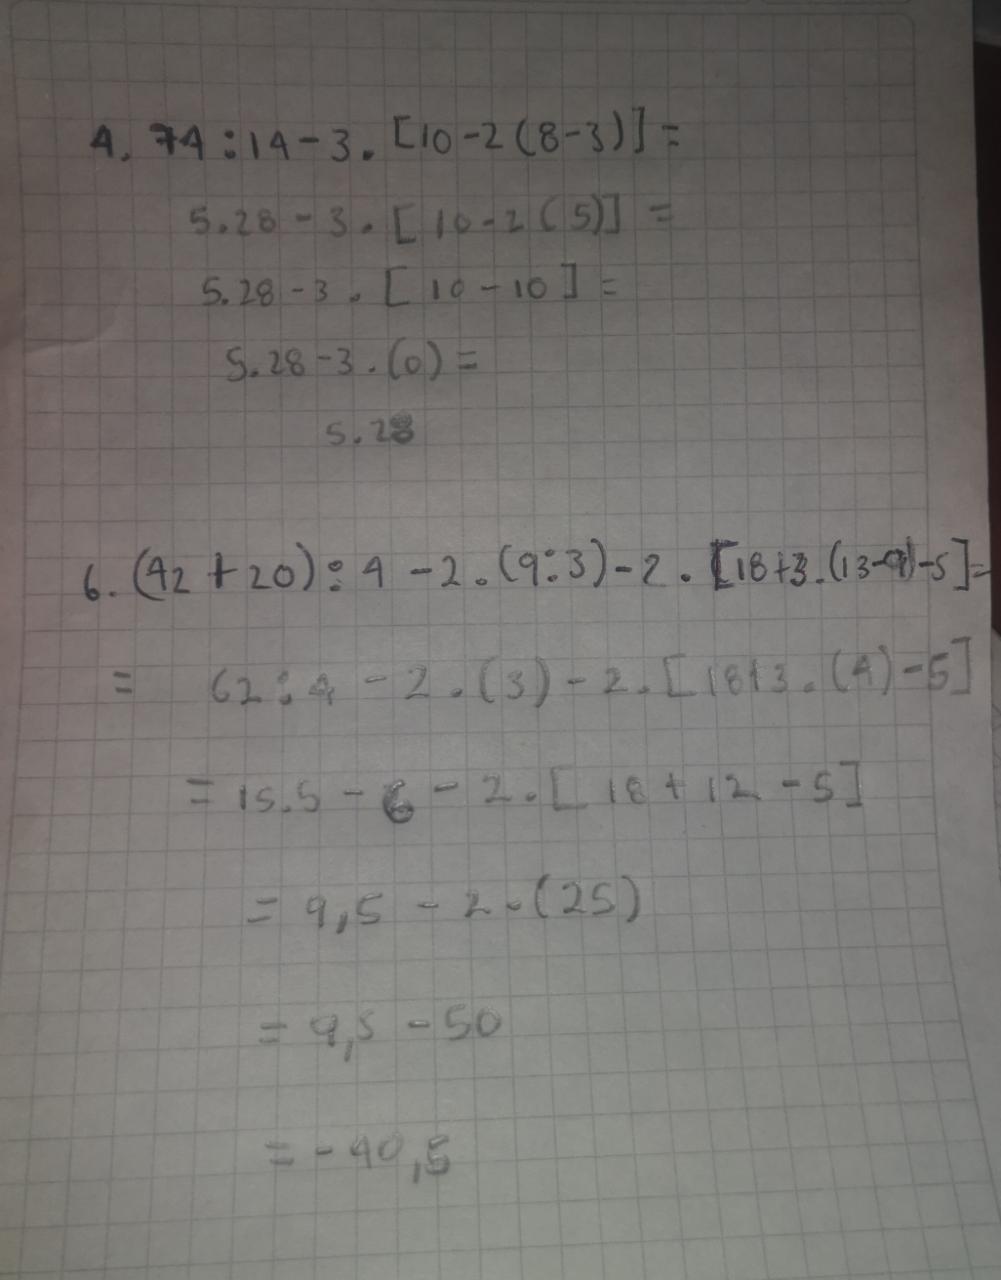 4. 74:14-3.[10-2(8-3)]=
5.28-3.[10-2(5)]=
5.28-3.[10-10]=
5.28-3.(0)=
5.28
6. (42+20):4-2.(9:3)-2.[18+3.(13-9)-5]=
= 62:4-2.(3)-2.[18+3.(4)-5]
= 15.5-6-2.[18+12-5]
= 9,5-2.(25)
= 9,5-50
= -40,5